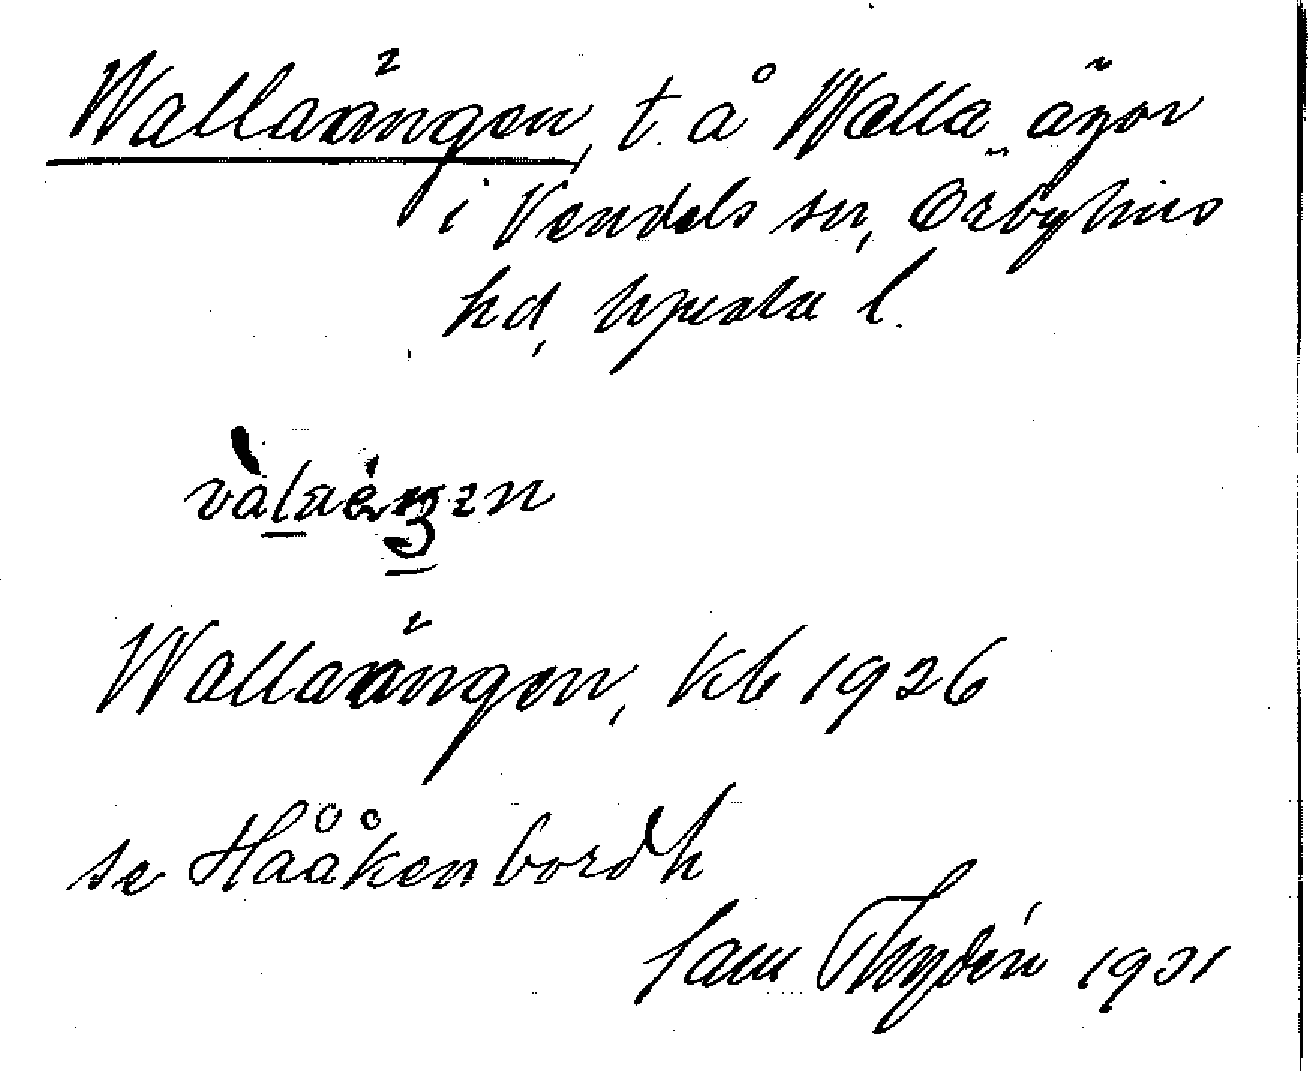 Wallaängen, t. å Walla ägor
i Vendels sn, Örbyhus
hd, Upsala l.
Wallaängen, Kb 1926
se Hååkenbordh
Sam Thydén 1931